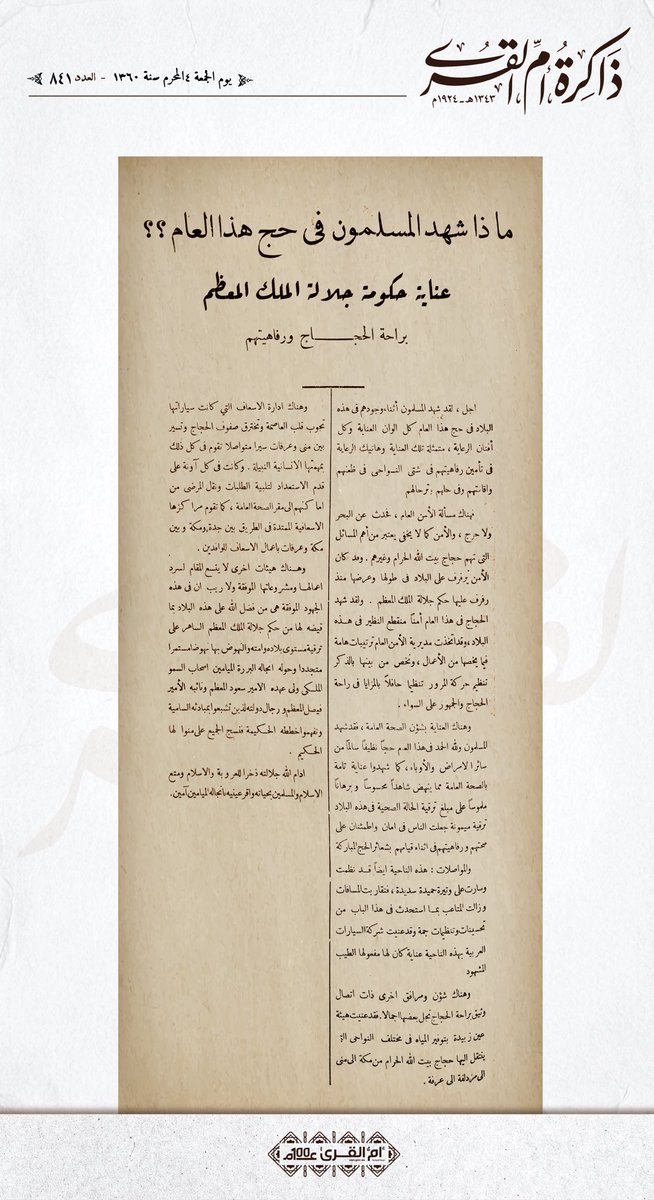 ذاكرة أم القرى
١٣٤٣هـ - ١٩٢٤م
يوم الجمعة ٤ المحرم سنة ١٣٦٠ - العدد ٨٤١
ماذا شهد المسلمون فى حج هذا العام ؟؟
عناية حكومة جلالة الملك المعظم
براحة الحجاج ورفاهيتهم
اجل ، لقد شهد المسلمون أثناء وجودهم فى هذه
البلاد فى حج هذا العام كل الوان العناية وكل
أفنان الرعاية ، متمثلة تلك العناية وهاتيك الرعاية
فى تأمين رفاهيتهم فى شتى النواحى فى ظعنهم
واقامتهم وفى حلهم وترحالهم
فهناك مسألة الأمن العام ، فحدث عن البحر
ولا حرج ، والأمن كما لا يخفى يعتبر من أهم المسائل
التى تهم حجاج بيت الله الحرام وغيرهم . وقد كان
الأمن يرفرف على البلاد فى طولها وعرضها منذ
رفرف عليها حكم جلالة الملك المعظم . ولقد شهد
الحجاج فى هذا العام أمنا منقطع النظير فى هذه
البلاد ، وقد اتخذت مديرية الأمن العام ترتيبات هامة
فيما يخصها من الأعمال ، ونخص من بينها بالذكر
تنظيم حركة المرور تنظيما حافلاً بالمزايا فى راحة
الحجاج والجمهور على السواء .
وهناك العناية بشؤن الصحة العامة ، فقد شهد
المسلمون ولله الحمد فى هذا العام حجاً نظيفاً سالماً من
سائر الامراض والأوباء ، كما شهدوا عناية تامة
بالصحة العامة مما ينهض شاهداً محسوسا وبرهاناً
ملموساً على مبلغ ترقية الحالة الصحية فى هذه البلاد
ترقية ميمونة جعلت الناس فى امان واطمئنان على
صحتهم ورفاهيتهم فى اثناء قيامهم بشعائر الحج المباركة
والمواصلات : هذه الناحية ايضاً قد نظمت
وسارت على وتيرة حميدة سديدة ، فتقاربت المسافات
وزالت المتاعب بما استحدث فى هذا الباب من
تحسينات وتنظيمات جمة وقد عنيت شركة السيارات
العربية بهذه الناحية عناية كان لها مفعولها الطيب
المشهود
وهناك شؤن ومرافق اخرى ذات اتصال
وثيق براحة الحجاج نجمل بعضها اجمالا . فقد عنيت هيئة
عين زبيدة بتوفير المياه فى مختلف النواحى التى
ينتقل اليها حجاج بيت الله الحرام من مكة الى منى
الى مزدلفة الى عرفة .
وهناك ادارة الاسعاف التى كانت سياراتها
تجوب قلب العاصمة وتخترق صفوف الحجاج وتسير
بين منى وعرفات سيرا متواصلا تقوم فى كل ذلك
بمهمتها الانسانية النبيلة . وكانت فى كل آونة على
قدم الاستعداد لتلبية الطلبات ونقل المرضى من
اماكنهم الى مقر الصحة العامة ، كما تقوم مراكزها
الاسعافية الممتدة فى الطريق بين جدة ومكة وبين
مكة وعرفات باعمال الاسعاف للوافدين .
وهناك هيئات اخرى لا يتسع المقام لسرد
اعمالها ومشروعاتها الموفقة ولا ريب ان فى هذه
الجهود الموفقة هى من فضل الله على هذه البلاد بما
قيضه لها من حكم جلالة الملك المعظم الساهر على
ترقية مستوى بلاده وامته والنهوض بها نهوضا مستمرا
متجددا وحوله انجاله البررة الميامين اصحاب السمو
الملكى ولى عهده الامير سعود المعظم ونائبه الأمير
فيصل المعظم و رجال دولته لذين تشبعوا بمبادئه السامية
وتفهموا خططه الحكيمة فنسج الجميع على منوالها
الحكيم .
ادام الله جلالته ذخرا للعروبة والاسلام ومتع
الاسلام والمسلمين بحياته واقر عينيه بانجاله الميامين آمين .
أم القرى